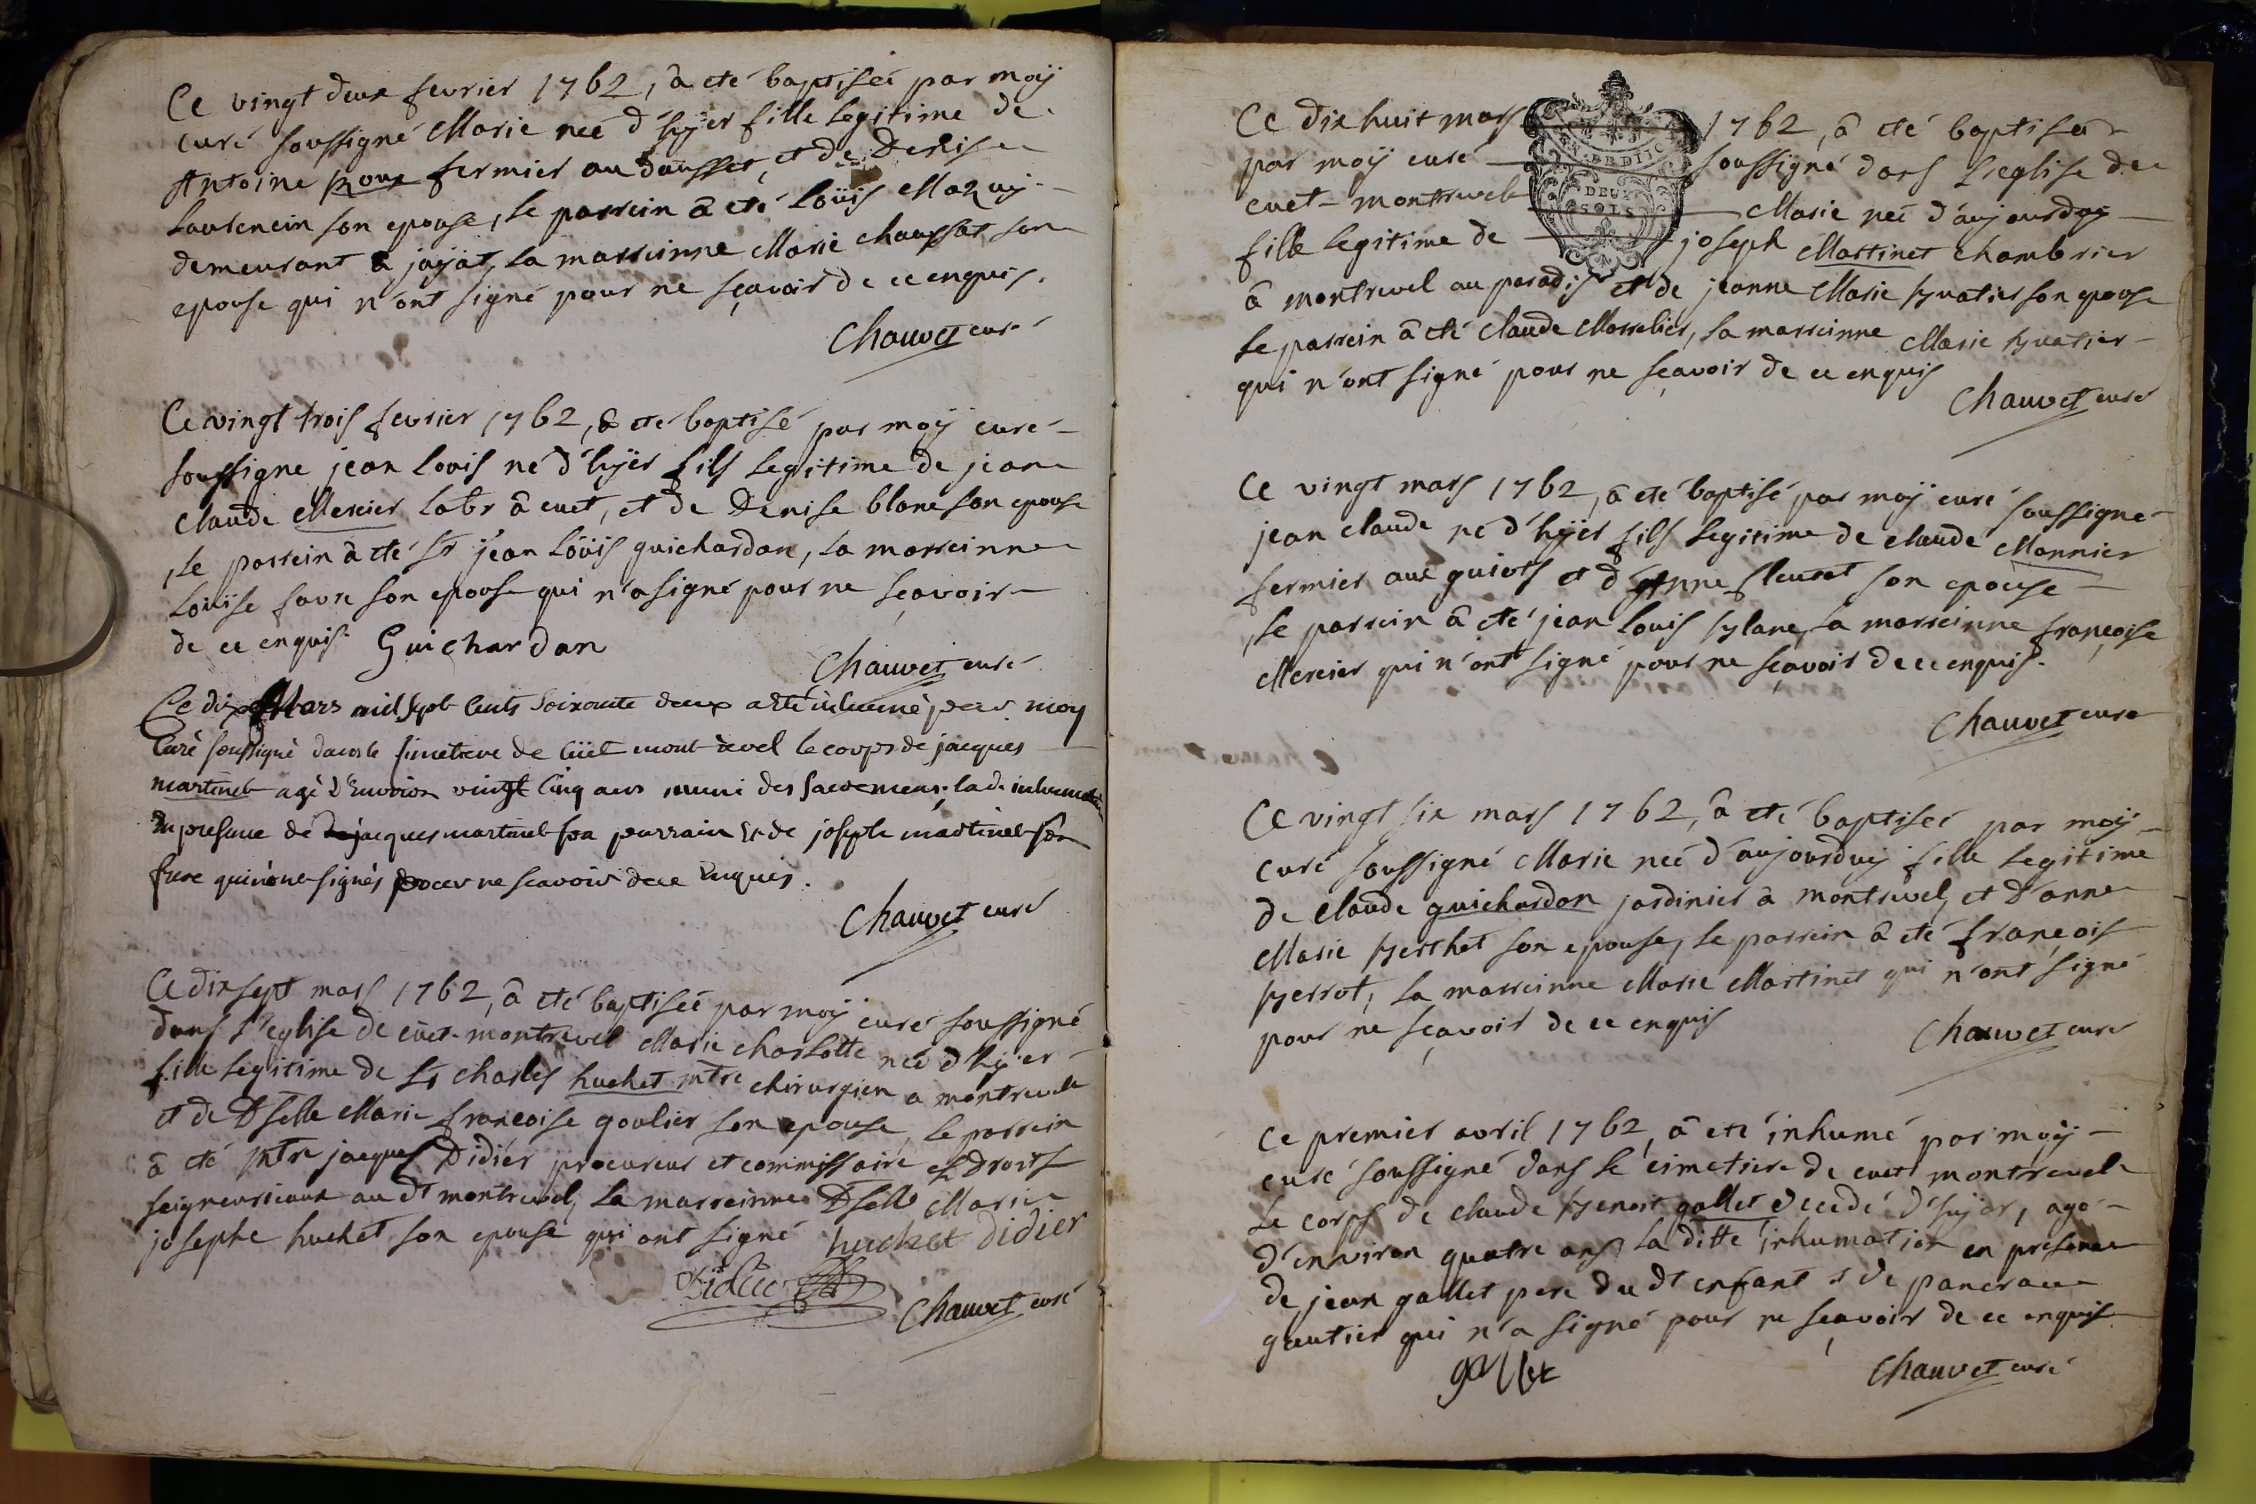 Ce vingt deux fevrier 1762, à eté baptiseé par moÿ
curé soussigné Marie neé d'hÿer fille legitime de
Antoine roux fermier au dousset, et de Denise
Laurencin son epouse, le parrein â eté Loüis Mazuÿ
demeurant à jaÿat, la marreinne Marie Chaussat son
epouse qui n'ont signé pour ne sçavoir de ce enquis.
Chauvet curé
Ce vingt trois fevrier 1762, à eté baptisé par moÿ curé
soussigne jean Louis né d'hÿer fils legitime de jean
claude Mercier labr â cuet, et de Denise blanc son epouse
le parrein â eté Sr jean Loüis guichardan, la marreinne
Loüise favre son epouse qui n'a signé pour ne sçavoir
de ce enquis. Guichardan
Chauvet curé
Ce dix Mars mil sept cents soixante deux a eté inhumé par moy
Curé soussigné dans le simetiere de cüet montrevel le corps de jacques
martinet agé d'Environ vingt Cinq ans muni des sacremens, lad. inhumation
En presence de jacques martinet son parrain Et de joseph martinet son
frere qui n'ont signés pour ne scavoir de ce Enquis.
Chauvet curé
Ce dix sept mars 1762, â eté baptiseé par moÿ curé soussigné
dans l'eglise de cuet-montrevel Marie Charlotte neé d'hÿer
fille legitime de Sr Charles huchet mtre chirurgien a montrevel
et de Dselle Marie françoise goulier son epouse, le parrein
â eté mtre jacques Didier procureur et commissaire es Droits
seigneuriaux au dt montrevel, la marreinne Dselle Marie
josephe huchet son epouse qui ont signé huchet didier
Didier
Chauvet curé
Ce dix huit mars 1762, â eté baptiseé
par moÿ curé soussigné dans l'eglise de
cuet-montrevel Marie neé d'aujourduÿ
DEUX
SOLS
fille legitime de joseph Martinet Chambrier
â montrevel au paradis et de jeanne Marie pvatier son epouse
le parrein â eté Claude Marrelier, la marreinne Marie pvatier
qui n'ont signé pour ne sçavoir de ce enquis
Chauvet curé
Ce vingt mars 1762, â eté baptisé par moÿ curé soussigné
jean claude né d'hÿer fils legitime de claude Monnier
fermier aux guiots et d'Anne fleuret son epouse
le parrein â eté jean Louis blanc, la marreinne françoise
Mercier qui n'ont signé pour ne sçavoir de ce enquis.
Chauvet curé
Ce vingt six mars 1762, â eté baptiseé par moÿ
curé soussigné Marie neé d'aujourduÿ fille legitime
de claude guichardon jardinier à montrevel, et d'anne
Marie berthet son epouse, le parrein â eté françois
perrot, la marreinne Marie Martinet qui n'ont signé
pour ne sçavoir de ce enquis
Chauvet curé
Ce premier avril 1762, â eté inhumé par moÿ
curé soussigné dans le cimetiere de cuet montrevel
le corps de claude benoit gallet decedé d'hÿer, agé
d'environ quatre ans, la ditte inhumation en presence
de jean gallet pere du dt enfant & de pancrace
gautier qui n'a signé pour ne sçavoir de ce enquis
gallet
Chauvet curé